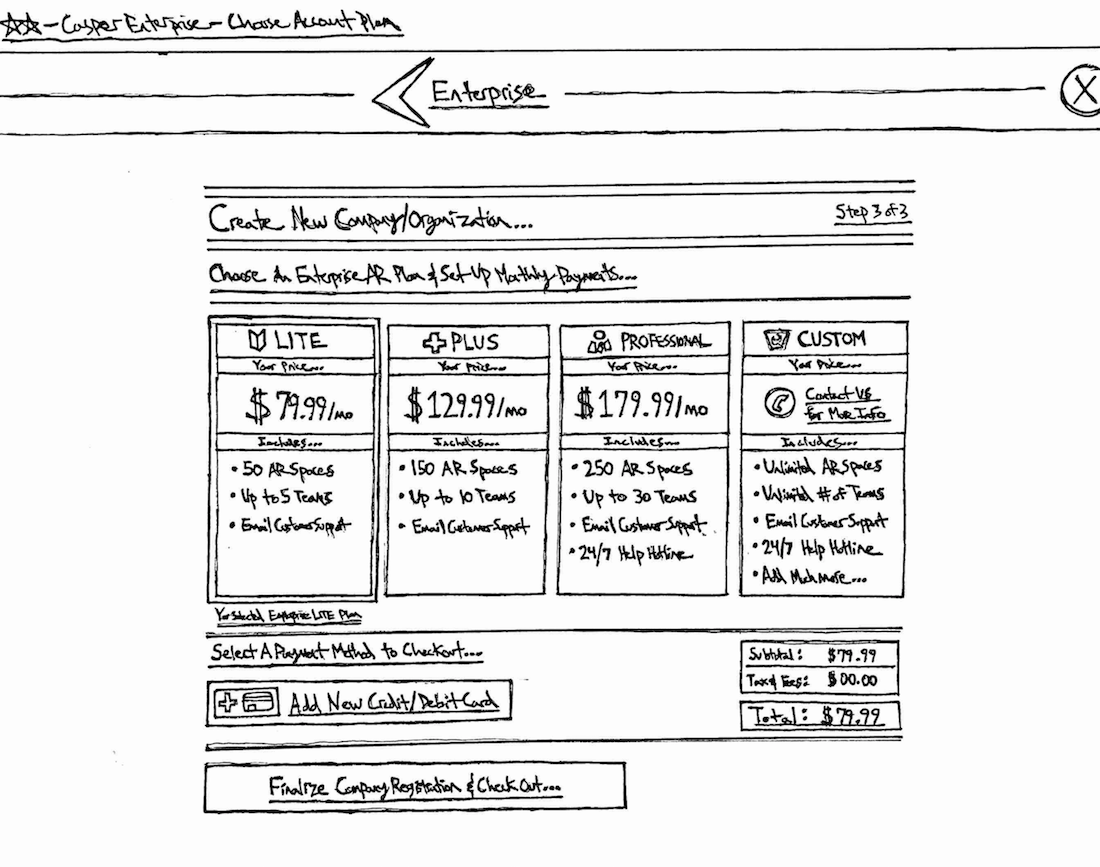 ☆☆-Casper Enterprise-Choose Account Plan
Enterprise
X
Create New Company/Organization...
Step 3 of 3
Choose An Enterprise AR Plan & Set-Up Monthly Payments...
LITE
Your Price...
$79.99/mo
Includes...
• 50 AR Spaces
• Up to 5 Teams
• Email Customer Support
PLUS
Your Price...
$129.99/mo
Includes...
• 150 AR Spaces
• Up to 10 Teams
• Email Customer Support
PROFESSIONAL
Your Price...
$179.99/mo
Includes...
• 250 AR Spaces
• Up to 30 Teams
• Email Customer Support
• 24/7 Help Hotline
CUSTOM
Your Price...
Contact Us
for More Info
Includes...
• Unlimited AR Spaces
• Unlimited # of Teams
• Email Customer Support
• 24/7 Help Hotline
• And Much more...
You Selected Enterprise LITE Plan
Select A Payment Method to Checkout...
Add New Credit/Debit Card
Subtotal: $79.99
Tax & Fees: $00.00
Total: $79.99
Finalize Company Registration & Check Out...